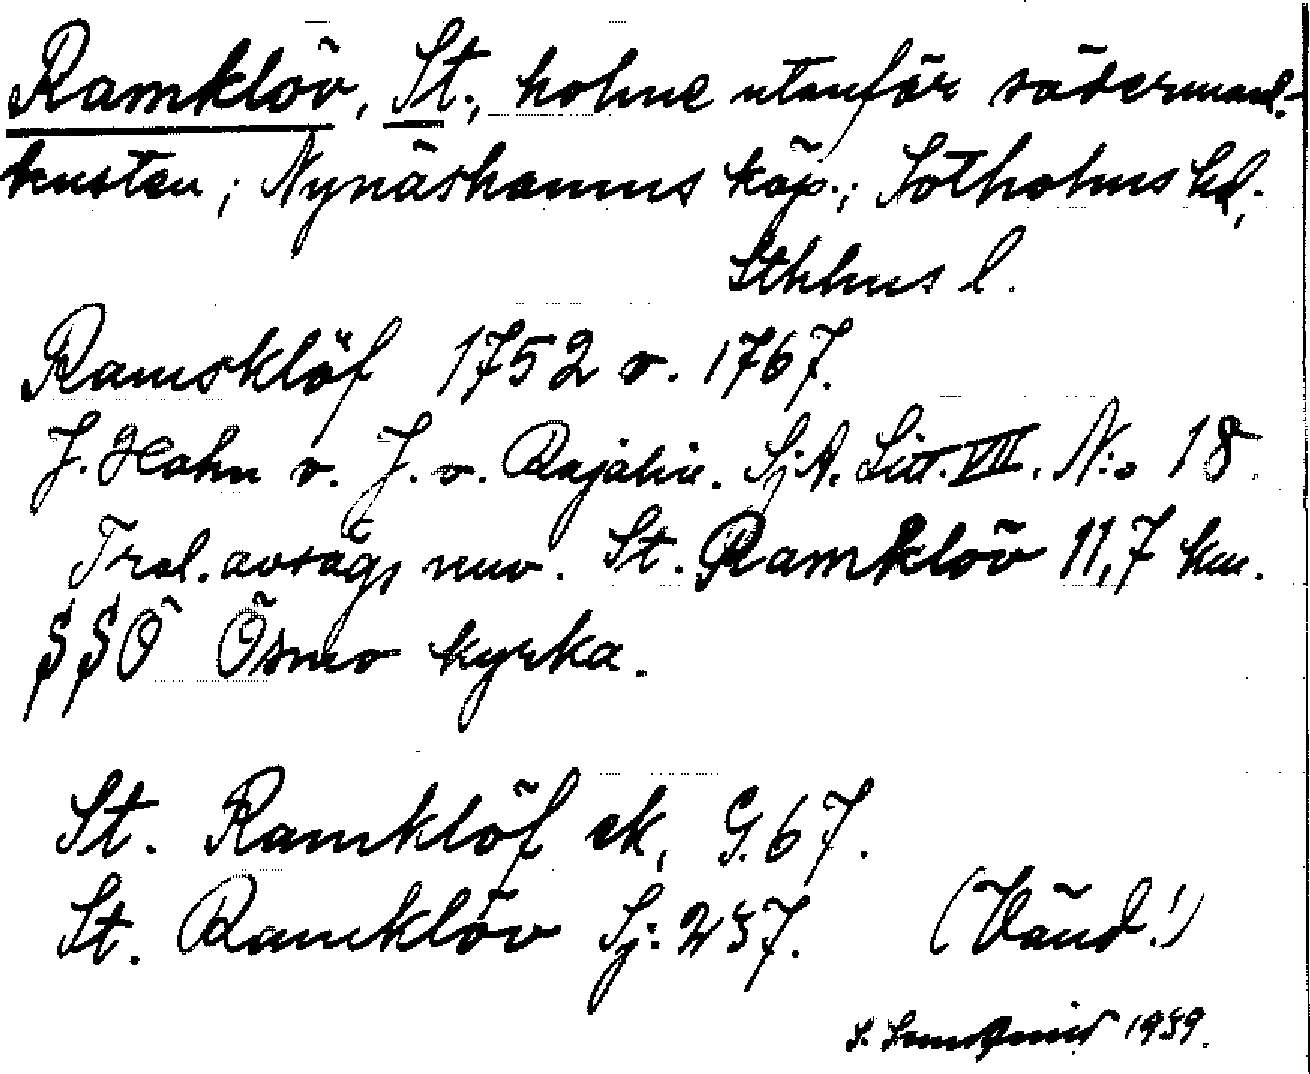 Ramklöv, St., holme utanför södermanl.-
kusten; Nynäshamns köp.; Sotholms hd,
Sthlms l.
Ramsklöf 1752 o. 1767.
J. Hahn o. J. v. Rajalin. Sj.A. Litt. VII. N:o 18.
Trol. avsågs nuv. St. Ramklöv 11,7 km.
SSO Ösmo kyrka.
St. Ramklöf ek, G. 67.
St. Ramklöv Sj. 237. (Vänd!)
S. 1939.